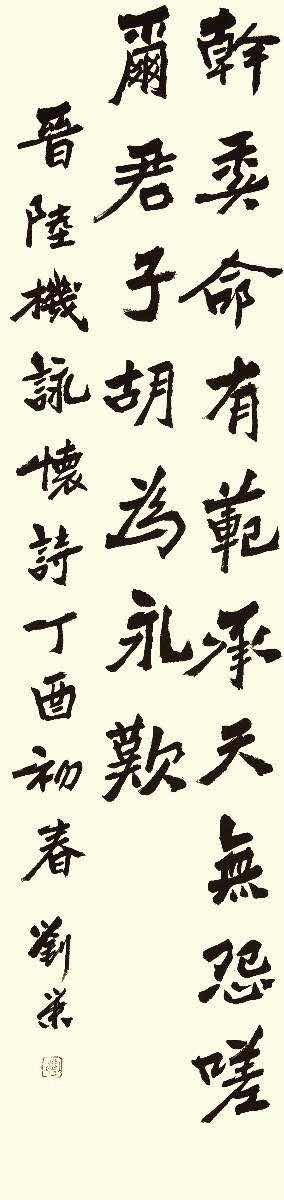 幹㐱命有範承天無怨嗟
爾君子胡為永歎
晉陸機詠懷詩丁酉初春劉業